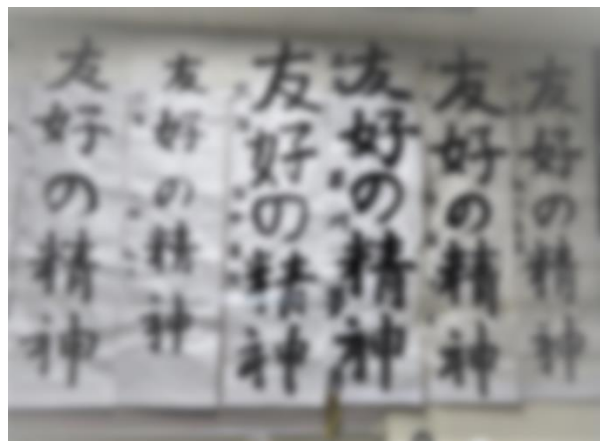 友好の精神
友好の精神
友好の精神
友好の精神
友好の精神
友好の精神